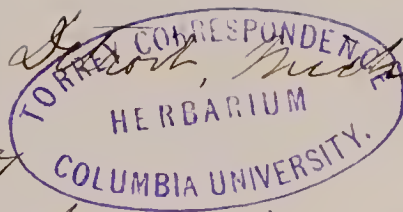 Detroit, Mich
TORREY CORRESPONDENCE
HERBARIUM
COLUMBIA UNIVERSITY.